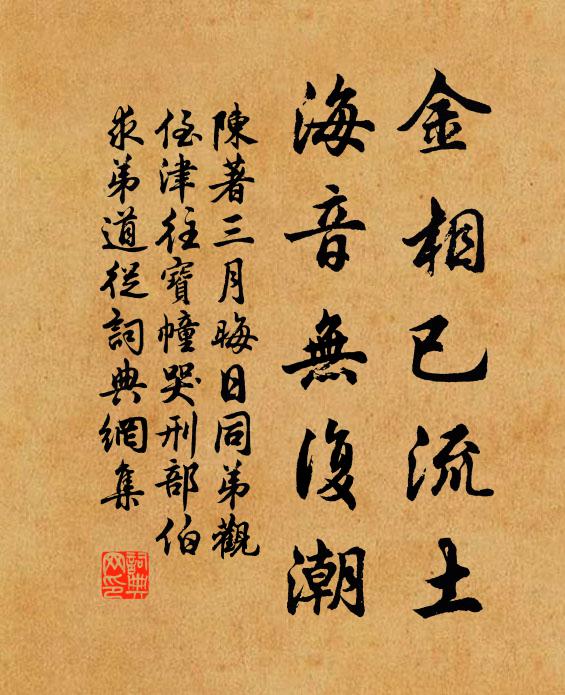 金相已流土
海音無復潮
陳著三月晦日同弟觀
侄津往寶幢哭刑部伯
求弟道從詞典網集
詞典网印